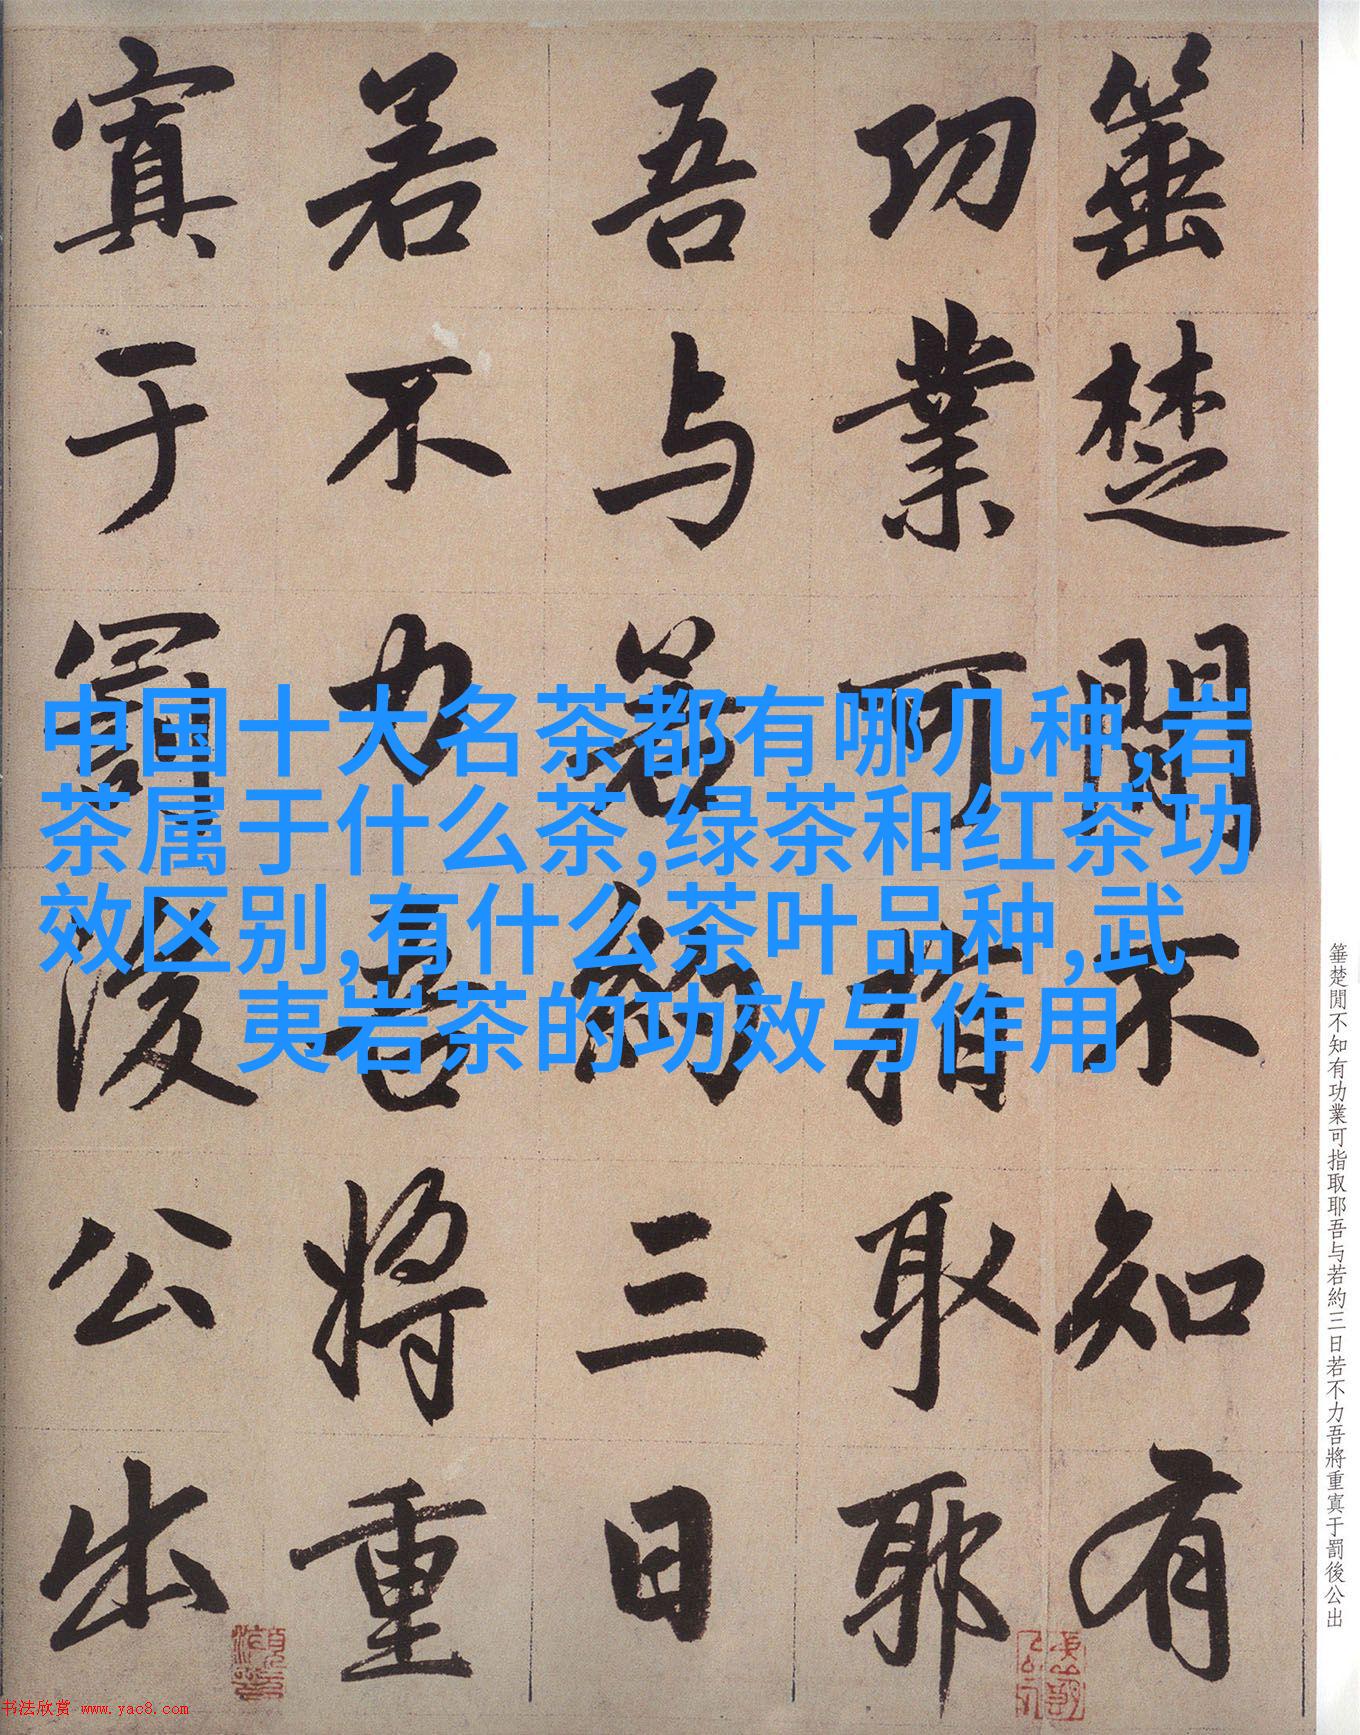 箠楚閒不知有
功業可指取耶
吾与若約三日
若不力吾將重
寘于罰後公出
中国十大名茶都有哪几种,岩
茶属于什么茶,绿茶和红茶功
效区别,有什么茶叶品种,武
夷岩茶的功效与作用
箠楚閒不知有功業可指取耶吾与若約三日若不力吾將重寘于罰後公出
书法欣赏 www.yac8.com